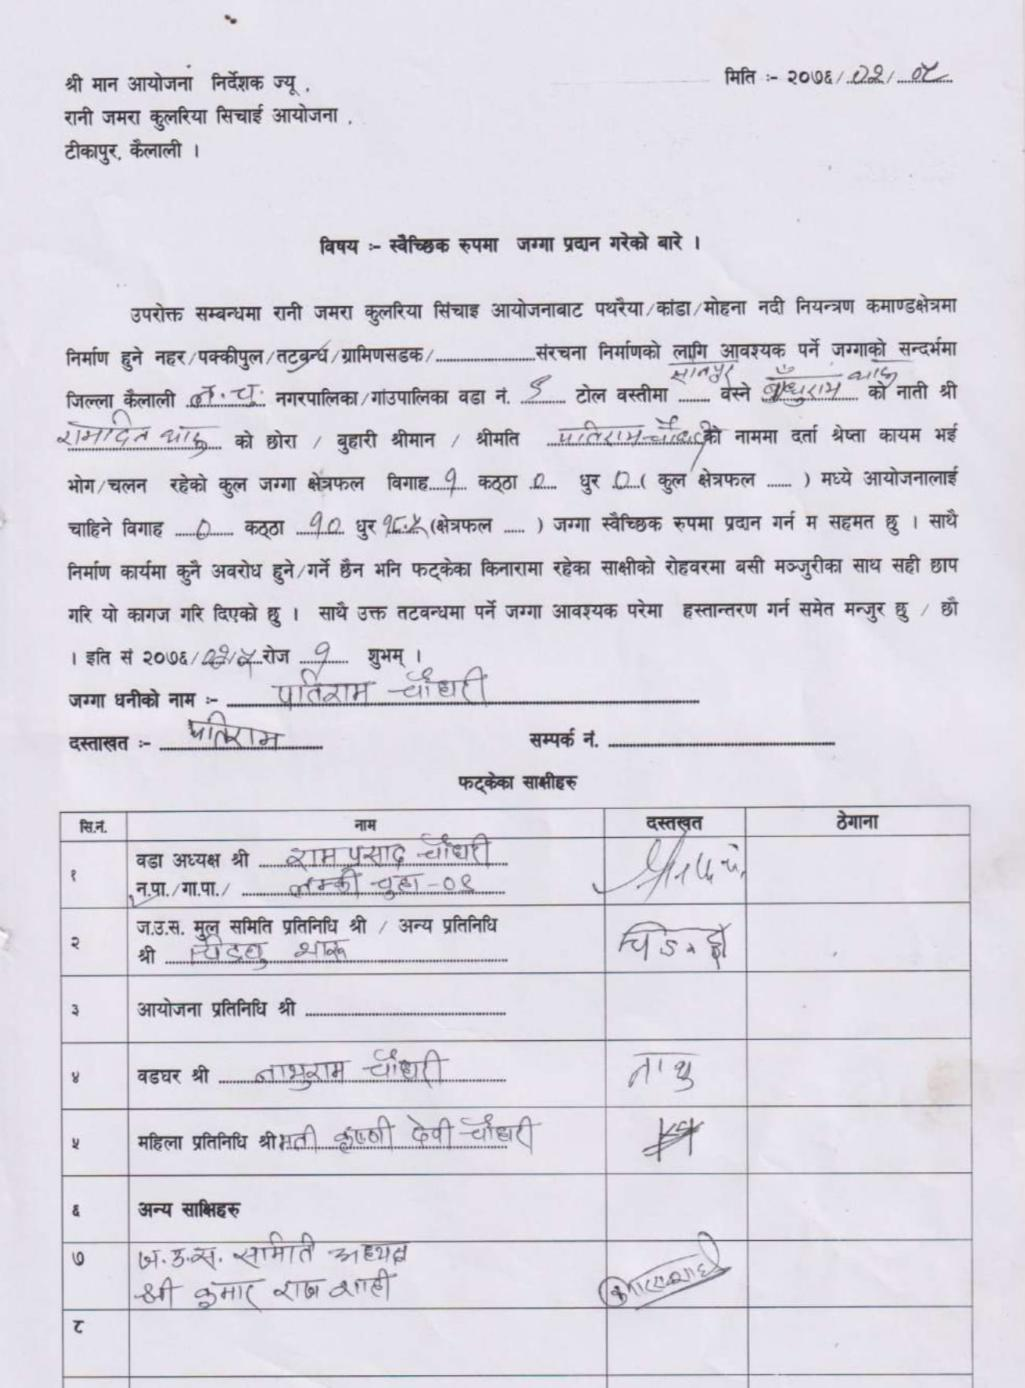 श्री मान आयोजना निर्देशक ज्यू ,
मिति :- २०७६/०२/
रानी जमरा कुलरिया सिचाई आयोजना ,
टीकापुर, कैलाली ।
विषय :- स्वैच्छिक रुपमा जग्गा प्रदान गरेको बारे ।
उपरोक्त सम्बन्धमा रानी जमरा कुलरिया सिंचाइ आयोजनाबाट पथरैया/कांडा/मोहना नदी नियन्त्रण कमाण्डक्षेत्रमा
निर्माण हुने नहर/पक्कीपुल/तटबन्ध/ग्रामिणसडक/..................संरचना निर्माणको लागि आवश्यक पर्ने जग्गाको सन्दर्भमा
जिल्ला कैलाली ल.चु. नगरपालिका/गांउपालिका वडा नं. टोल वस्तीमा ........ बस्ने को नाती श्री
को छोरा / बुहारी श्रीमान / श्रीमति पतिराम चौधरी को नाममा दर्ता श्रेष्ता कायम भई
भोग/चलन रहेको कुल जग्गा क्षेत्रफल विगाह १ कठ्ठा ० धुर ० ( कुल क्षेत्रफल ...... ) मध्ये आयोजनालाई
चाहिने विगाह ० कठ्ठा १० धुर १८.५ (क्षेत्रफल ..... ) जग्गा स्वैच्छिक रुपमा प्रदान गर्न म सहमत छु । साथै
निर्माण कार्यमा कुनै अवरोध हुने/गर्ने छैन भनि फट्केका किनारामा रहेका साक्षीको रोहवरमा बसी मञ्जुरीका साथ सही छाप
गरि यो कागज गरि दिएको छु । साथै उक्त तटवन्धमा पर्ने जग्गा आवश्यक परेमा हस्तान्तरण गर्न समेत मन्जुर छु / छौ
। इति सं २०७६/ रोज १ शुभम् ।
जग्गा धनीको नाम :- पतिराम चौधरी
दस्ताखत :- पतिराम सम्पर्क नं. ..................
फट्केका साक्षीहरु
सि.नं. नाम दस्तखत ठेगाना
१ वडा अध्यक्ष श्री राम प्रसाद चौधरी
न.पा./गा.पा./ लम्की चुहा -०९
२ ज.उ.स. मुल समिति प्रतिनिधि श्री / अन्य प्रतिनिधि
श्री
३ आयोजना प्रतिनिधि श्री ..................
४ वडघर श्री चौधरी
५ महिला प्रतिनिधि श्रीमती कृष्णी देवी चौधरी
६ अन्य साक्षिहरु
७ ज.उ.स. समिति अध्यक्ष
श्री कुमार राज शाही
८